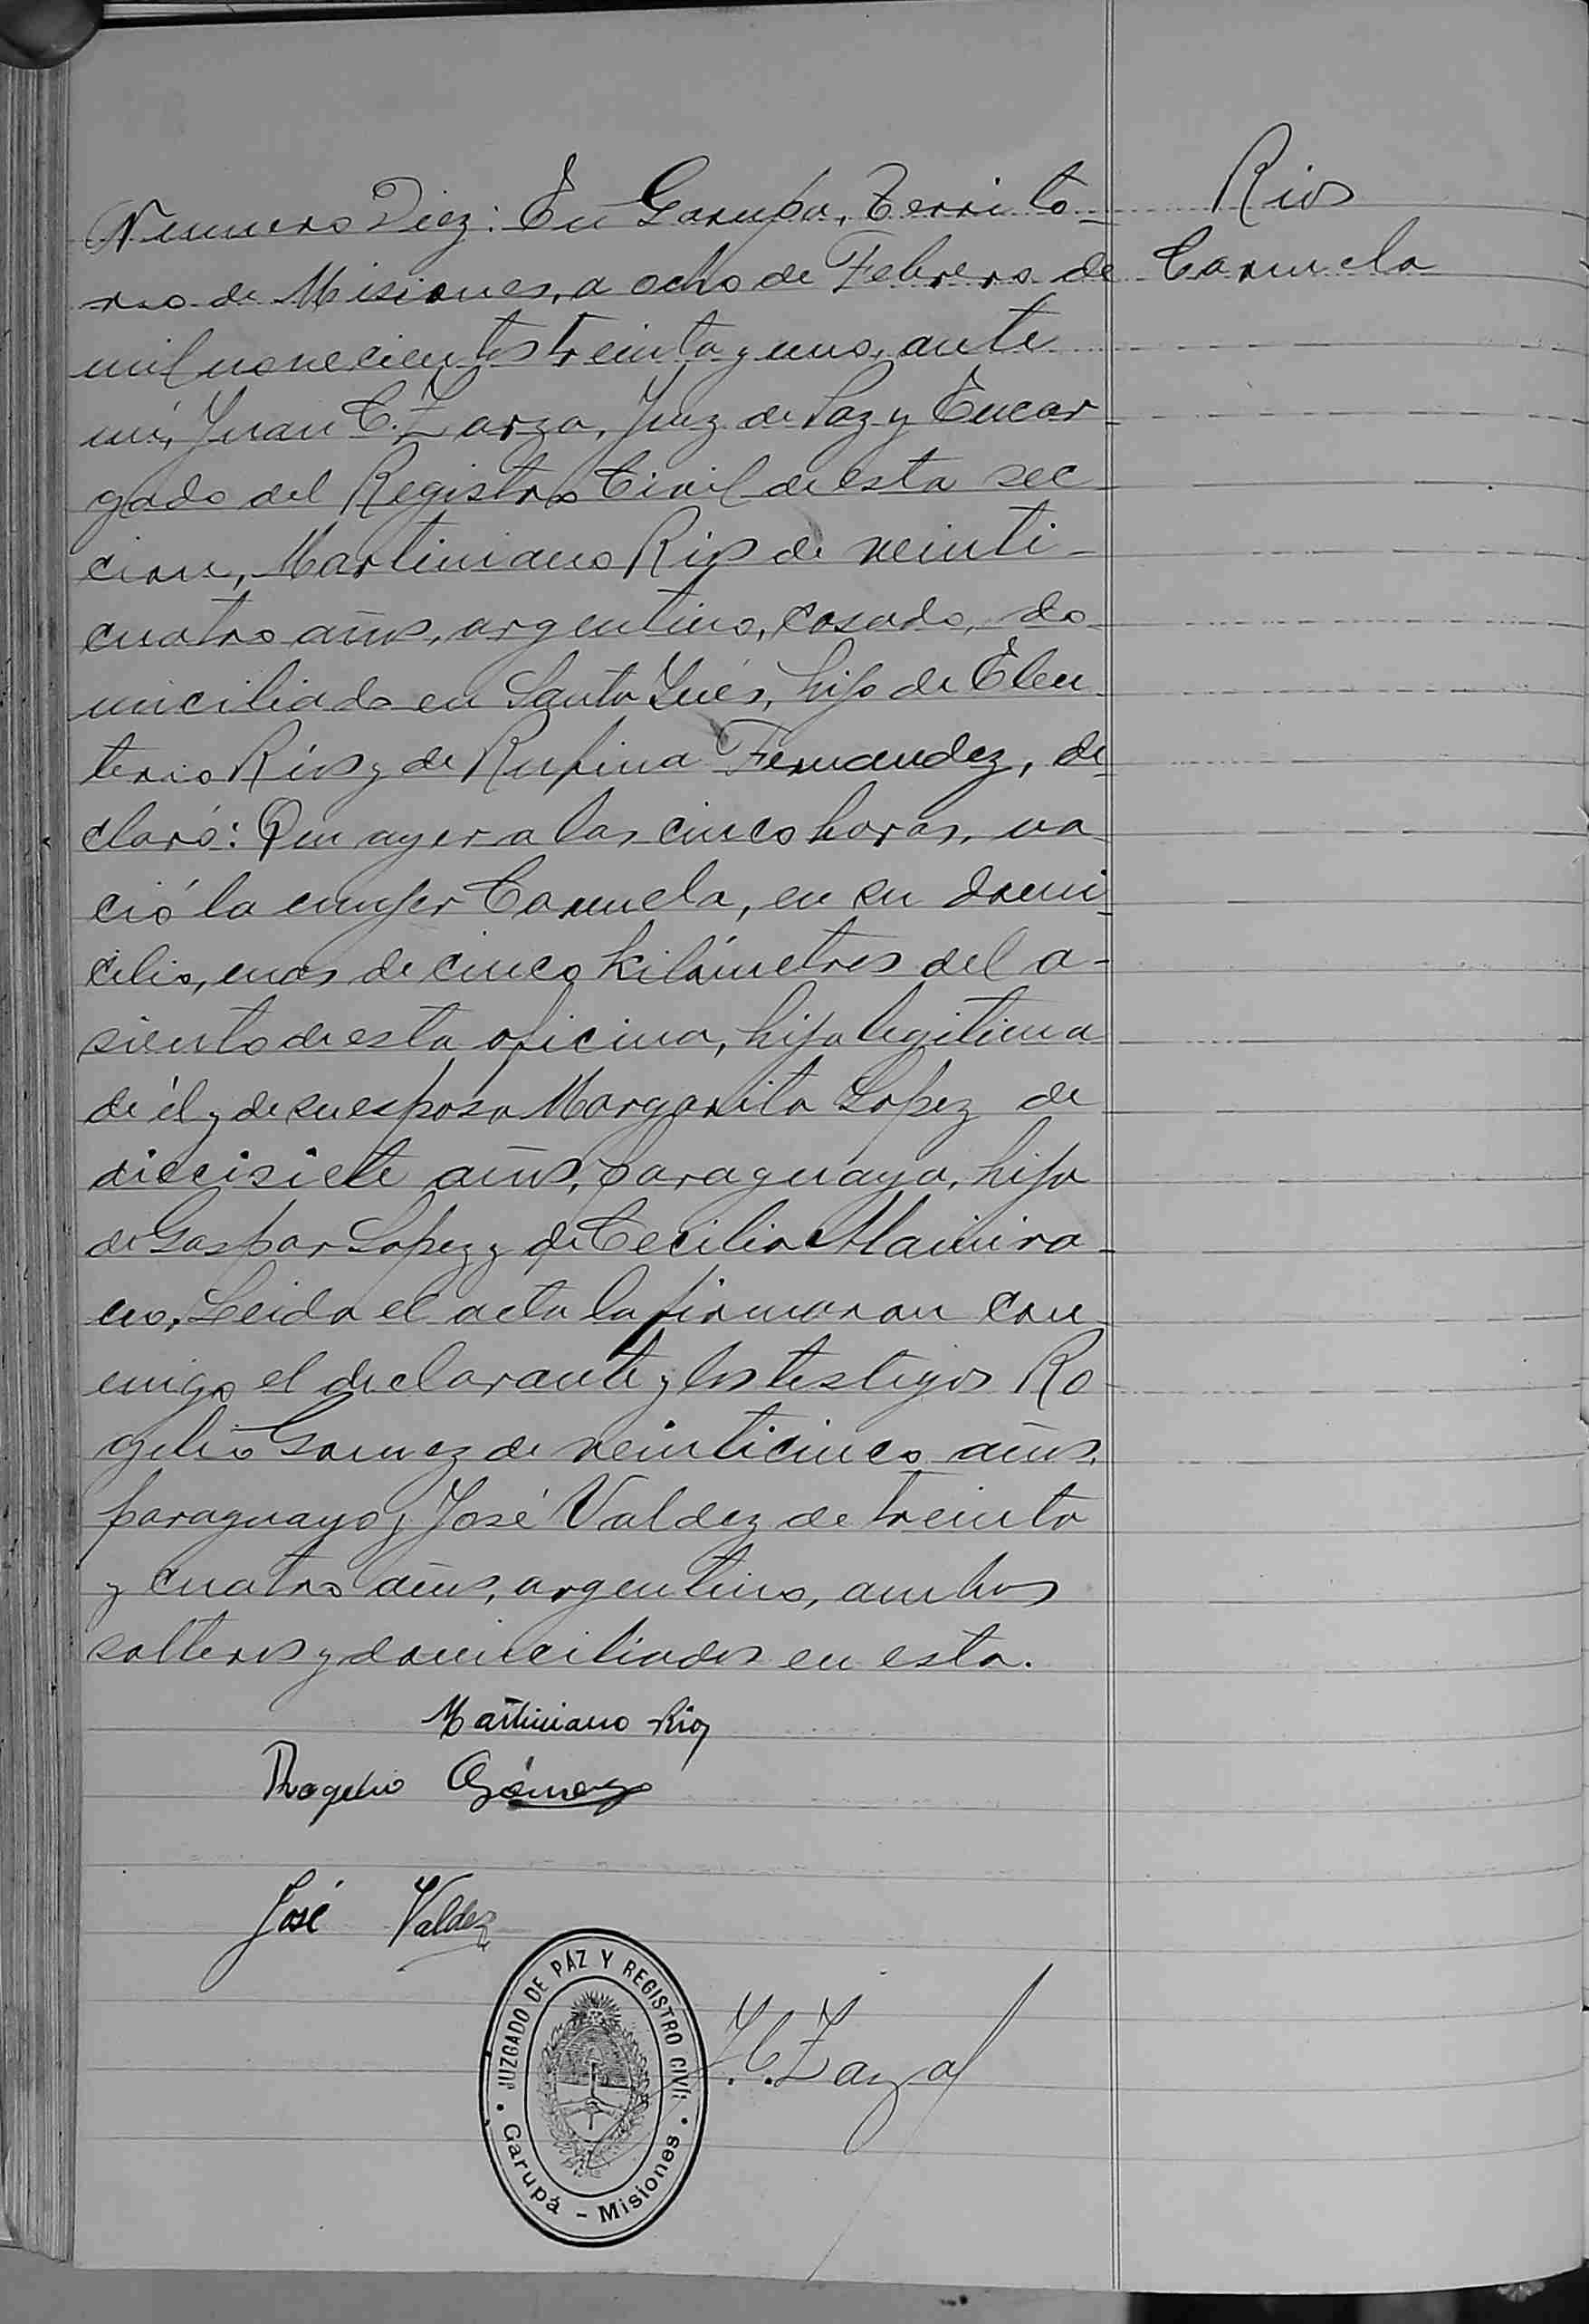 Rios
Carmela
Numero Diez: En Garupa, Territo-
rio de Misiones, a ocho de Febrero de
mil novecientos treinta y uno, ante
mi, Juan C. Zarza, Juez de Paz y Encar-
gado del Registro Civil de esta sec-
cion, Martiniano Rios de veinti-
cuatro años, argentino, casado, do-
miciliado en Santa Inés, hijo de Eleu-
terio Rios y de Rufina Fernandez, de-
claró: Que ayer a las cinco horas, na-
ció la mujer Carmela, en su domi-
cilio, mas de cinco kilómetros del a-
siento de esta oficina, hija legitima
de él y de su esposa Margarita Lopez de
diecisiete años, paraguaya, hija
de Gaspar Lopez y de Cecilia Almira-
no. Leida el acta la firmaron con-
migo el declarante y los testigos Ro-
gelio Gomez de veinticinco años,
paraguayo y José Valdez de treinta
y cuatro años, argentino, ambos
solteros y domiciliados en esta.
Martiniano Rios
Rogelio Gómez
José Valdez
J. C. Zarza
JUZGADO DE PAZ Y REGISTRO CIVIL
Garupá - Misiones